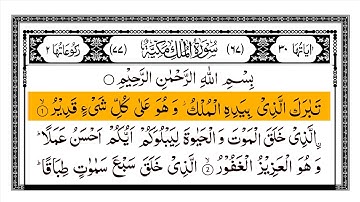 اٰیَاتُهَا ٣٠ (٦٧) سُوْرَةُ الْمُلْكِ مَكِّیَّةٌ (٧٧) رُكُوْعَاتُهَا ٢
بِسْمِ اللّٰهِ الرَّحْمٰنِ الرَّحِیْمِ
تَبٰرَكَ الَّذِیْ بِیَدِهِ الْمُلْكُ ؗ وَ هُوَ عَلٰی كُلِّ شَیْءٍ قَدِیْرُ ۙ ١
الَّذِیْ خَلَقَ الْمَوْتَ وَ الْحَیٰوةَ لِیَبْلُوَكُمْ اَیُّكُمْ اَحْسَنُ عَمَلًا ؕ
وَ هُوَ الْعَزِیْزُ الْغَفُوْرُ ۙ ٢ الَّذِیْ خَلَقَ سَبْعَ سَمٰوٰتٍ طِبَاقًا ؕ